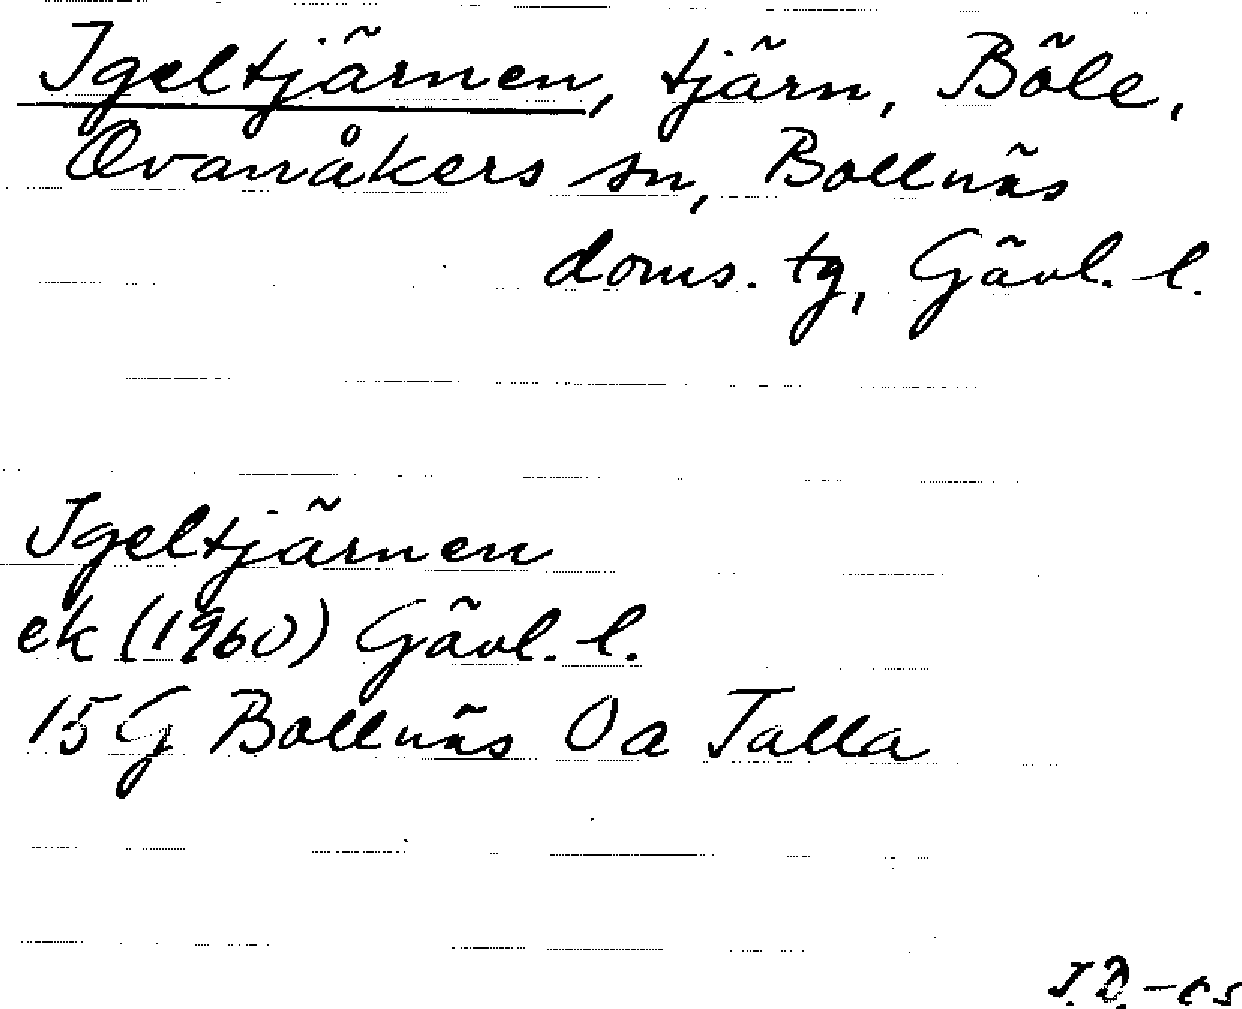 Igeltjärnen, tjärn, Böle,
Ovanåkers sn, Bollnäs
doms. tg, Gävl. l.
Igeltjärnen
ek (1960) Gävl. l.
15G Bollnäs 0a Talla